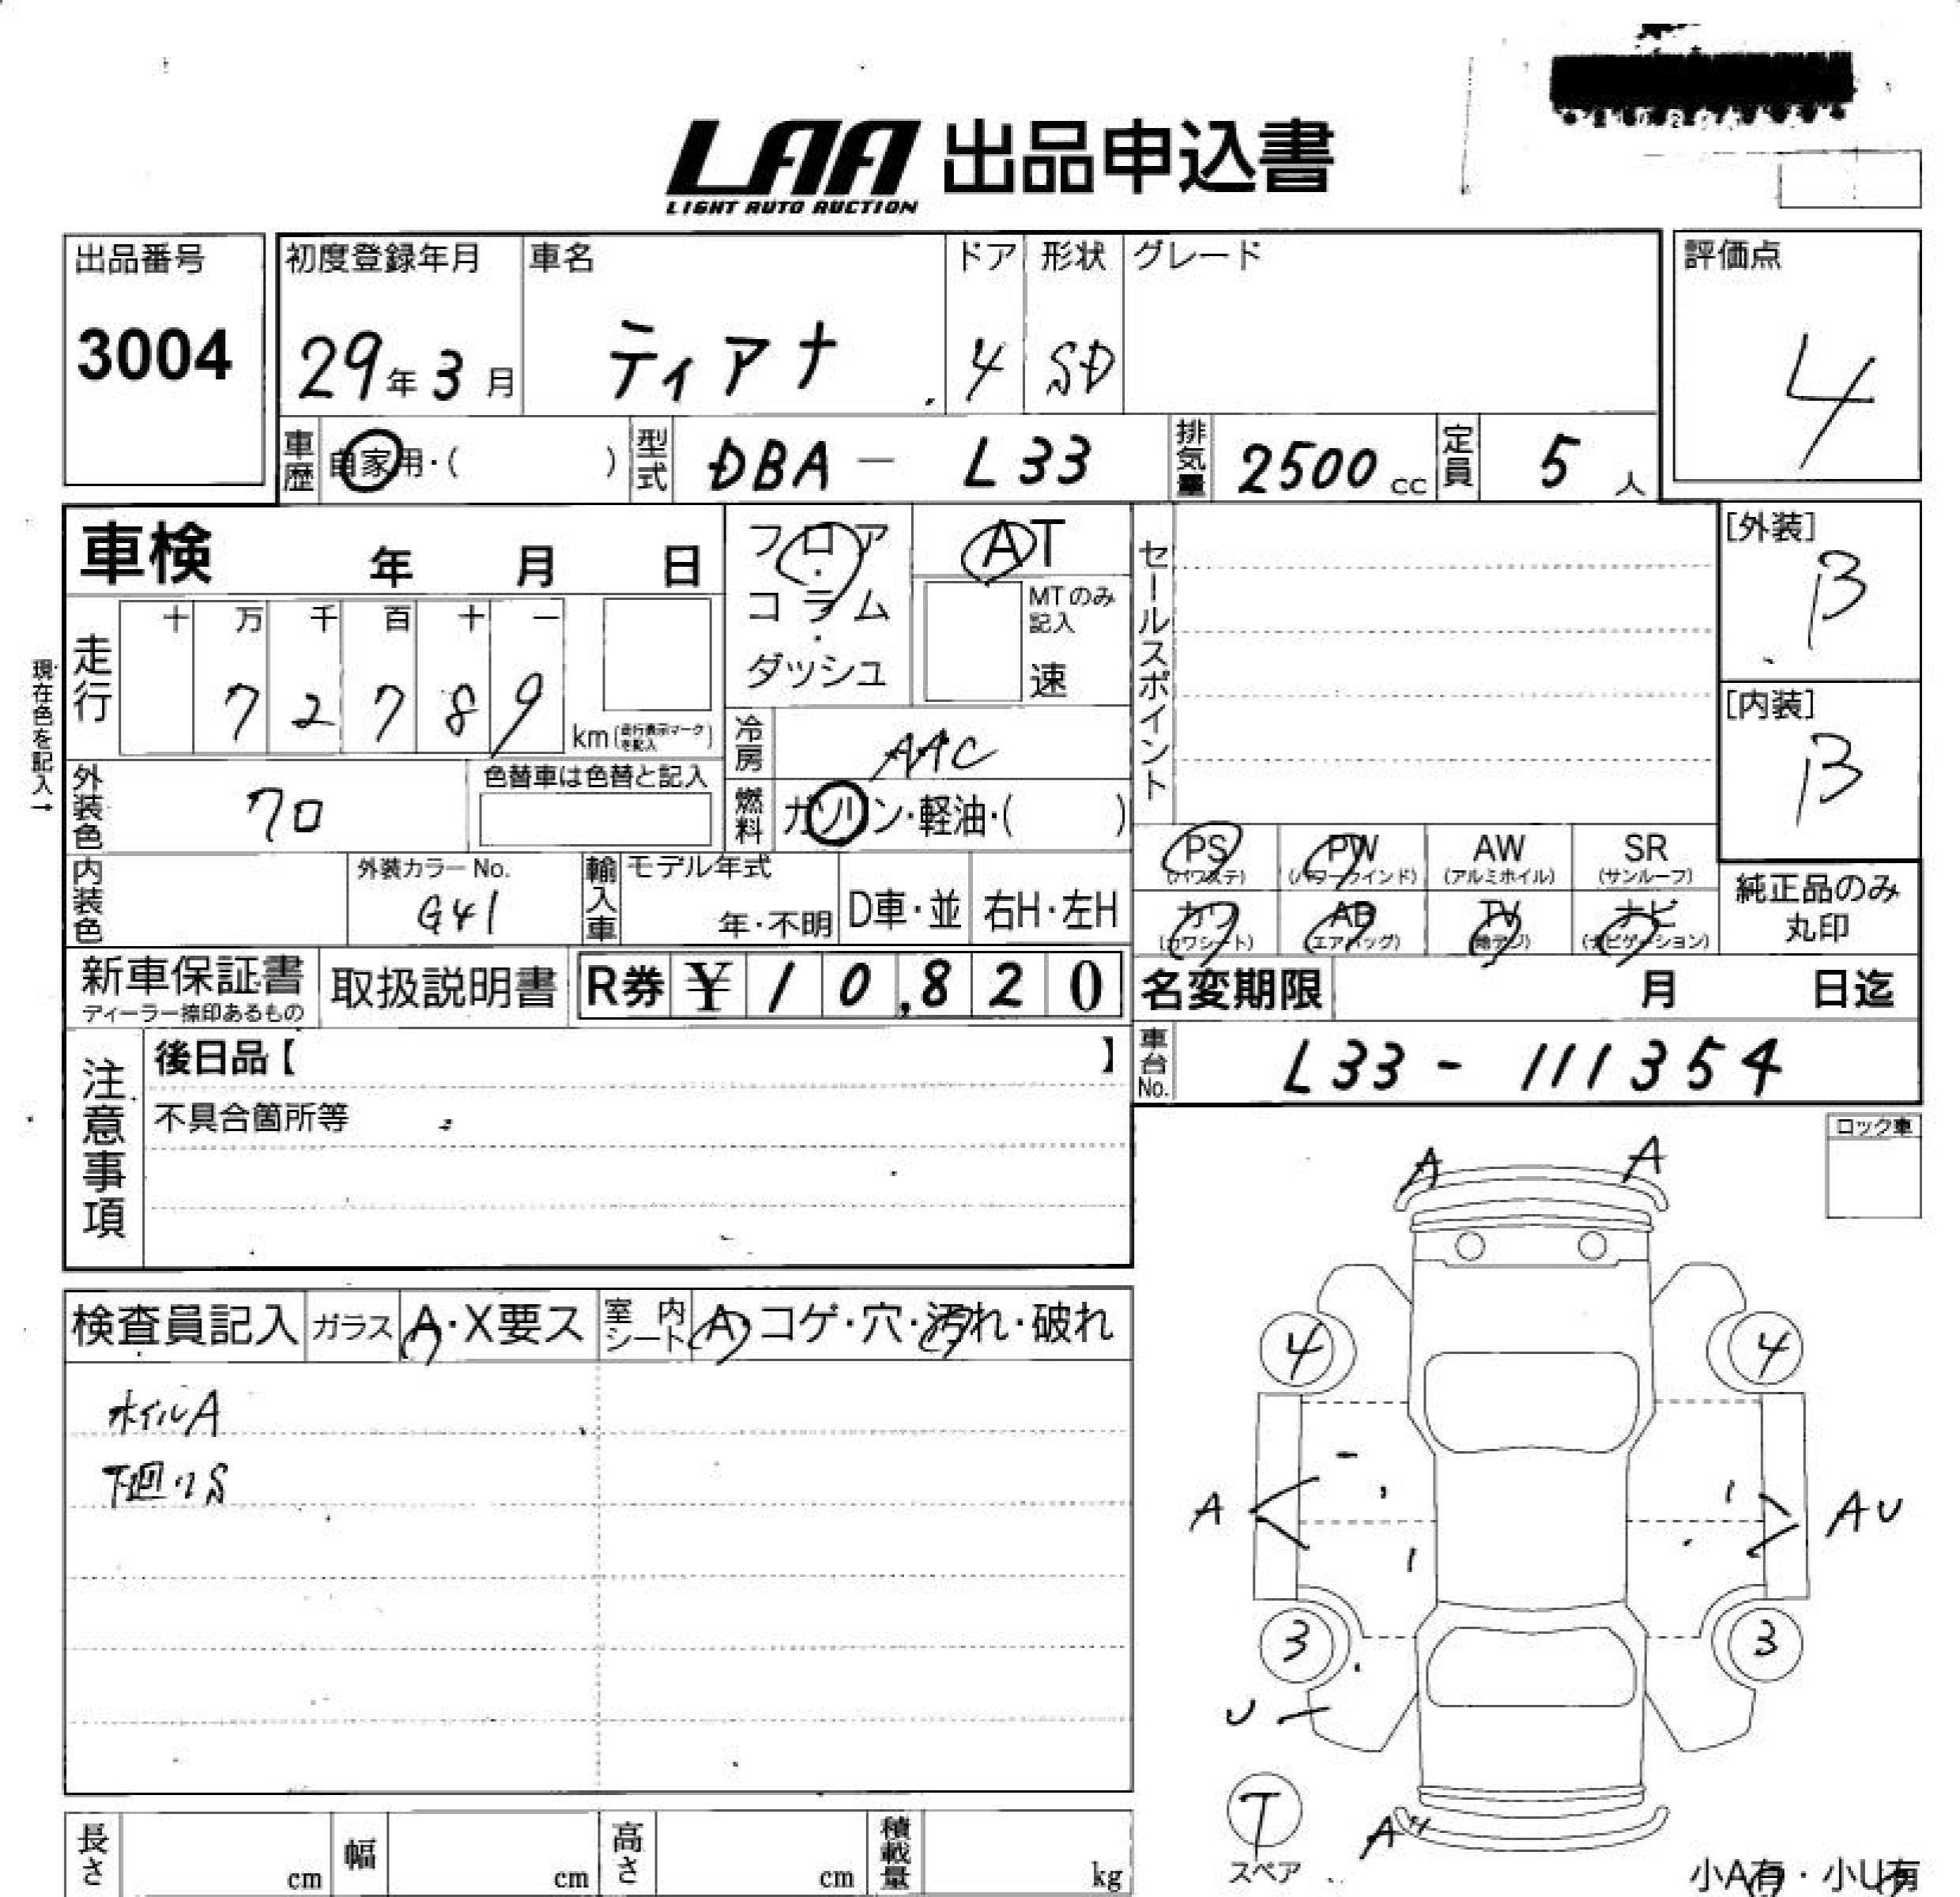 LAA 出品申込書
LIGHT AUTO AUCTION
出品番号
3004
初度登録年月
29年3月
車名
ティアナ
ドア
4
形状
SD
グレード
評価点
4
車歴
自家用・( )
型式
DBA - L33
排気量
2500cc
定員
5人
車検 年 月 日
フロア・コラム・ダッシュ
AT
MTのみ記入
速
セールスポイント
[外装]
B
[内装]
B
現在色を記入→
走行
十 万 千 百 十 一
7 2 7 8 9
km(走行表示マークを記入)
冷房
AAC
外装色
クロ
色替車は色替と記入
燃料
ガソリン・軽油・( )
内装色
外装カラーNo.
G41
輸入車
モデル年式
年・不明
D車・並
右H・左H
PS
(パワステ)
PW
(パワーウインド)
AW
(アルミホイル)
SR
(サンルーフ)
カワ
(カワシート)
AB
(エアバッグ)
TV
(地デジ)
ナビ
(ナビゲーション)
純正品のみ
丸印
新車保証書
ディーラー捺印あるもの
取扱説明書
R券 ¥10,820
名変期限 月 日迄
注意事項
後日品【 】
不具合箇所等
車台No.
L33 - 111354
ロック車
検査員記入
ガラス
A・X要ス
室内シート
A・コゲ・穴・汚れ・破れ
ホイルA
下廻りS
A A
4 4
A AU
3 3
U
T
スペア
A
小A有・小U有
長さ cm
幅 cm
高さ cm
積載量 kg